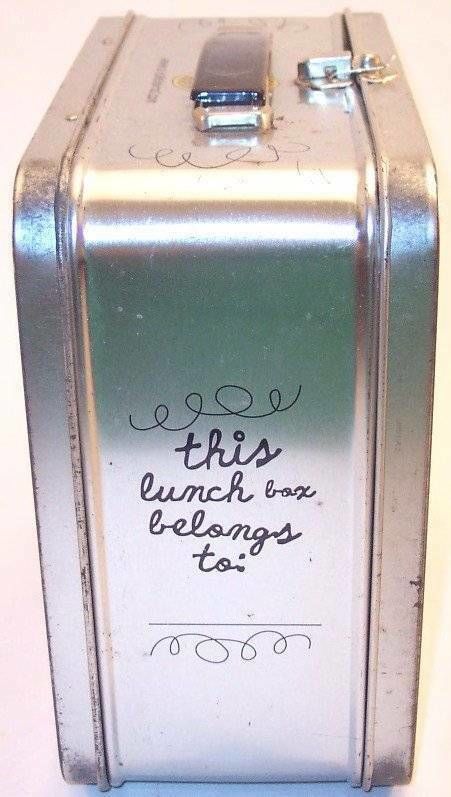 this
lunch box
belongs
to: